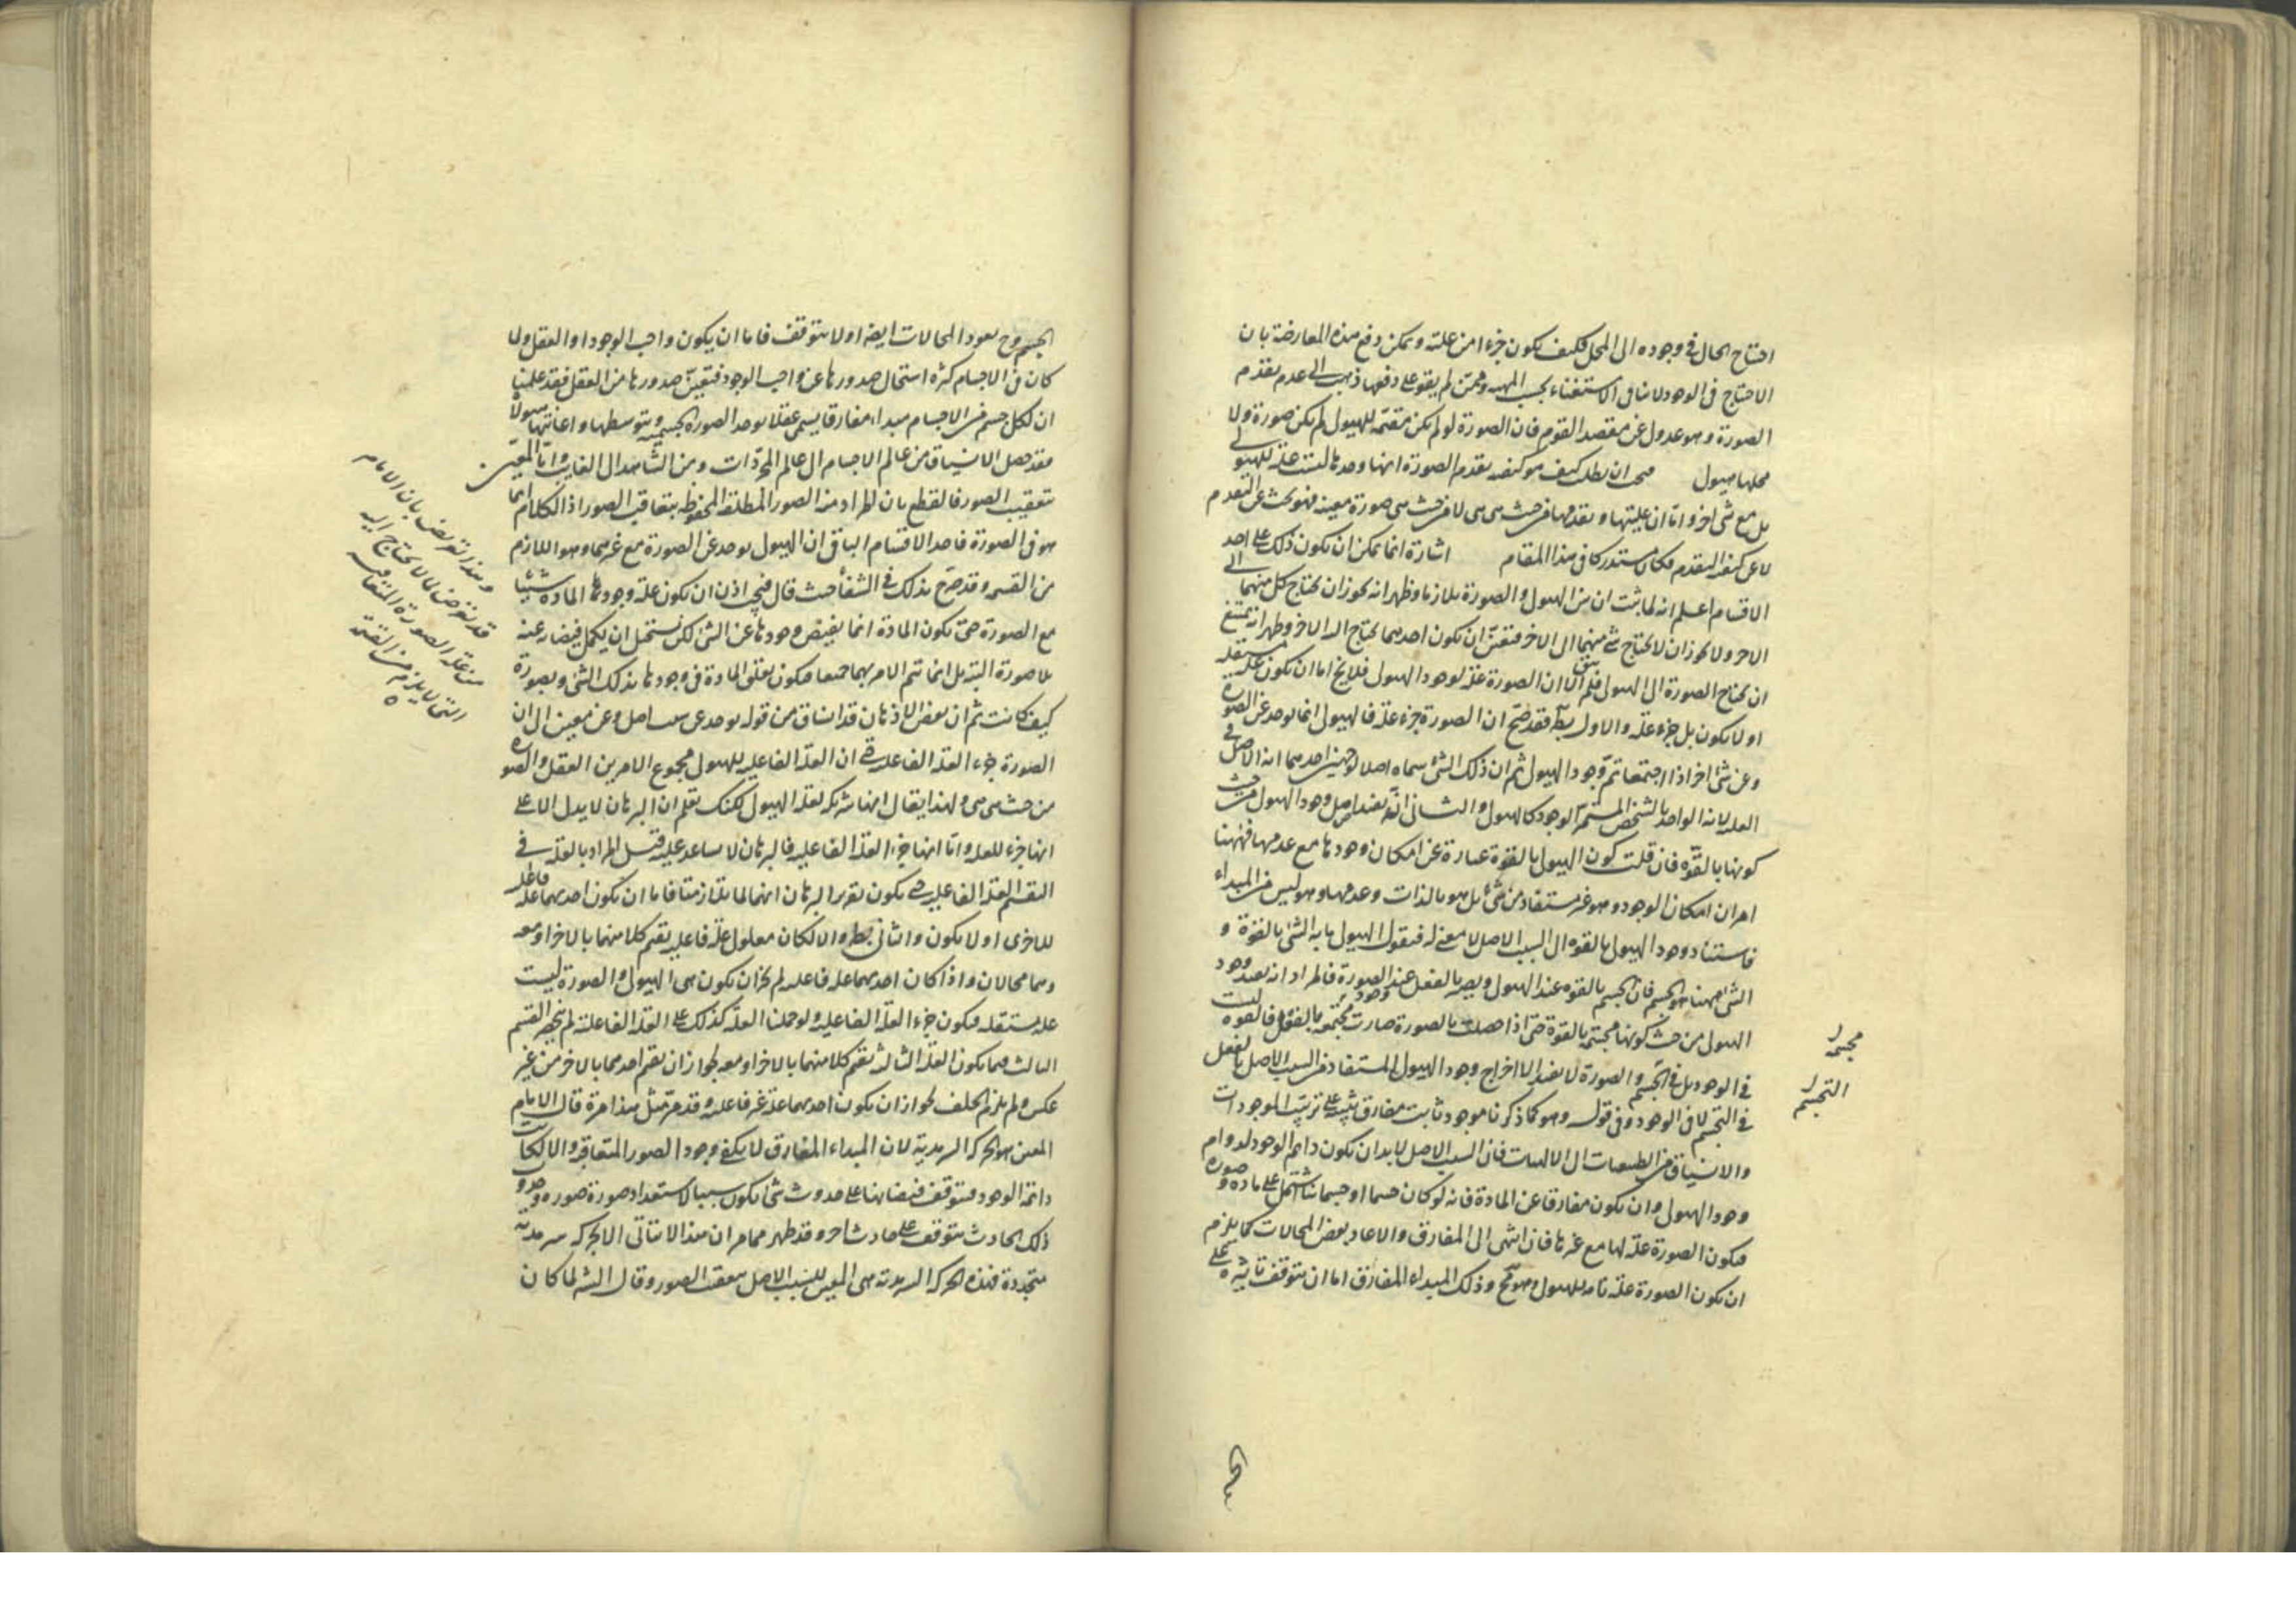 احتاج الحال فى وجوده الى المحل فكيف يكون جزءا من علته ويمكن دفع هذه المعارضة بان
الاحتياج فى الوجود لا ينافى الاستغناء بحسب المهية وممن لم يقو على دفعها ذهب الى عدم تقدم
الصورة وهو عدول عن مقصد القوم فان الصورة لو لم يكن مقيمة للهيولى لم يكن صورة ولا
محلها هيولى ان يطلب كيف هو كيفية تقدم الصورة انها وحدها ليست علة للهيولى
بل مع شئ اخر واما ان عليتها وتقدمها من حيث هى هى لا من حيث هى صورة معينة فهو بحث عن التقدم
لا عن كيفية التقدم فكان مستدركا فى هذا المقام اشارة انما يمكن ان يكون ذلك على احد
الاقسام اعلم انه لما ثبت ان بين الهيولى والصورة تلازما وظهر انه لا يجوز ان يحتاج كل منهما الى
الاخر ولا يجوز ان لا يحتاج شئ منهما الى الاخر فتعين ان يكون احدهما يحتاج اليه الاخر وظهر انه يمتنع
ان يحتاج الصورة الى الهيولى فلم يبق الا ان الصورة علة لوجود الهيولى فلا يخ اما ان يكون علة مستقلة
او لا يكون بل جزء علة والاول بط فقد صح ان الصورة جزء علة فالهيولى انما توجد عن الصورة
وعن شئ اخر اذا اجتمعا تم وجود الهيولى ثم ان ذلك الشئ سماه اصلا لوجهين احدهما انه الاصل فى
العلية لانه الواحد بالشخص المستمر الوجود كالهيولى والثانى انه يفيد اصل وجود الهيولى من حيث
كونها بالقوة فان قلت كون الهيولى بالقوة عبارة عن امكان وجودها مع عدمها فههنا
امران امكان الوجود وهو غير مستفاد من شئ بل هو بالذات وعدمها وهو ليس من المبداء
فاستناد وجود الهيولى بالقوة الى السبب الاصل لا معنى له فنقول الهيولى ما به الشئ بالقوة و
الشئ ههنا هو الجسم فان الجسم بالقوة عند الهيولى ويصير بالفعل عند الصورة فالمراد انه يفيد وجود
الهيولى من حيث كونها مجسمة بالقوة حتى اذا حصلت بالصورة صارت مجسمة بالفعل فالقوة ليست
فى الوجود بل فى التجسم والصورة لا تفيد الا اخراج وجود الهيولى المستفاد من السبب الاصل بالفعل
فى التجسم لا فى الوجود وفى قوله وهو كما ذكرنا موجود ثابت مفارق تنبيه على ترتيب الموجودات
والانسياق من الطبيعيات الى الالهيات فان السبب الاصل لا بد ان يكون دائم الوجود لدوام
وجود الهيولى وان يكون مفارقا عن المادة فانه لو كان جسما او جسمانيا اشتمل على مادة وصورة
فيكون الصورة علة لها مع غيرها فان انتهى الى المفارق والا عاد بعض المحالات كما يلزم
ان يكون الصورة علة تامة للهيولى وهو مح وذلك المبداء المفارق اما ان يتوقف تاثيره على
مجسمة
التجسم
الجسم وح يعود المحالات ايضا او لا يتوقف فاما ان يكون واجب الوجود او العقل ولما
كان فى الاجسام كثرة استحال صدورها عن واجب الوجود فتعين صدورها من العقل فقد علمنا
ان لكل جسم من الاجسام مبداء مفارقا يسمى عقلا يوجد الصورة الجسمية وبتوسطها واعانتها هيولاه
فقد حصل الانسياق من عالم الاجسام الى عالم المجردات ومن الشاهد الى الغايب واما المعين
بتعقيب الصور فالقطع بان المراد منه الصور المطلقة المحفوظة بتعاقب الصور اذ الكلام انما
هو فى الصورة فاحد الاقسام الباقى ان الهيولى توجد عن الصورة مع غيرها وهو اللازم
من القسمة وقد صرح بذلك فى الشفا حيث قال فيجب اذن ان يكون علة وجود المادة شيئا
مع الصورة حتى يكون المادة انما يفيض وجودها عن الشئ لكن يستحيل ان يكمل فيضانه عنه
بلا صورة البتة بل انما تتم الامر بهما جميعا فيكون تعلق المادة فى وجودها بذلك الشئ وبصورة
كيف كانت ثم ان بعض الاذهان قد انساق من قوله يوجد عن سبب اصل وعن معين الى ان
الصورة جزء العلة الفاعلية ان العلة الفاعلية للهيولى مجموع الامرين العقل والصورة
من حيث هى هى ولهذا يقال انها شريكة لعلة الهيولى لكنك تعلم ان البرهان لا يدل الا على
انها جزء للعلة واما انها جزء العلة الفاعلية فالبرهان لا يساعد عليه قيل المراد بالعلة فى
التقسيم العلة الفاعلية حتى يكون تقرير البرهان انهما لما تلازمتا فاما ان يكون احديهما علة فاعلية
للاخرى او لا يكون والثانى بط والا لكان معلول علة فاعلية يقيم كلا منهما بالاخر او معه
وهما محالان واذا كان احديهما علة فاعلية لم يجز ان يكون هى الهيولى والصورة ليست
علة مستقلة فيكون جزء العلة الفاعلية ولو حملنا العلة كذلك على العلة الفاعلية لم ينحصر القسم
الثالث فيما يكون العلة الثالثة يقيم كلا منهما بالاخر او معه لجواز ان يقيم احدهما بالاخر من غير
عكس ولم يلزم الخلف لجواز ان يكون احديهما علة غير فاعلية وقد مر مثل هذا مرة قال الامام
المعين هو الحركة السرمدية لان المبداء المفارق لا يكفى وجود الصور المتعاقبة والا لكانت
دائمة الوجود فيتوقف فيضانها على حدوث شئ يكون سببا لاستعداد صورة صورة وحدوث
ذلك الحادث يتوقف على حادث اخر وقد ظهر مما مر ان هذا لا يتاتى الا بحركة سرمدية
متجددة فهذه الحركة السرمدية هى المعين للسبب الاصل بتعقيب الصور وقال الش لما كان
وهذا تعريض بان الامام
قد تعرض لما لا يحتاج اليه
من علة الصورة المتعاقبة
التى لا يلزم من القسمة